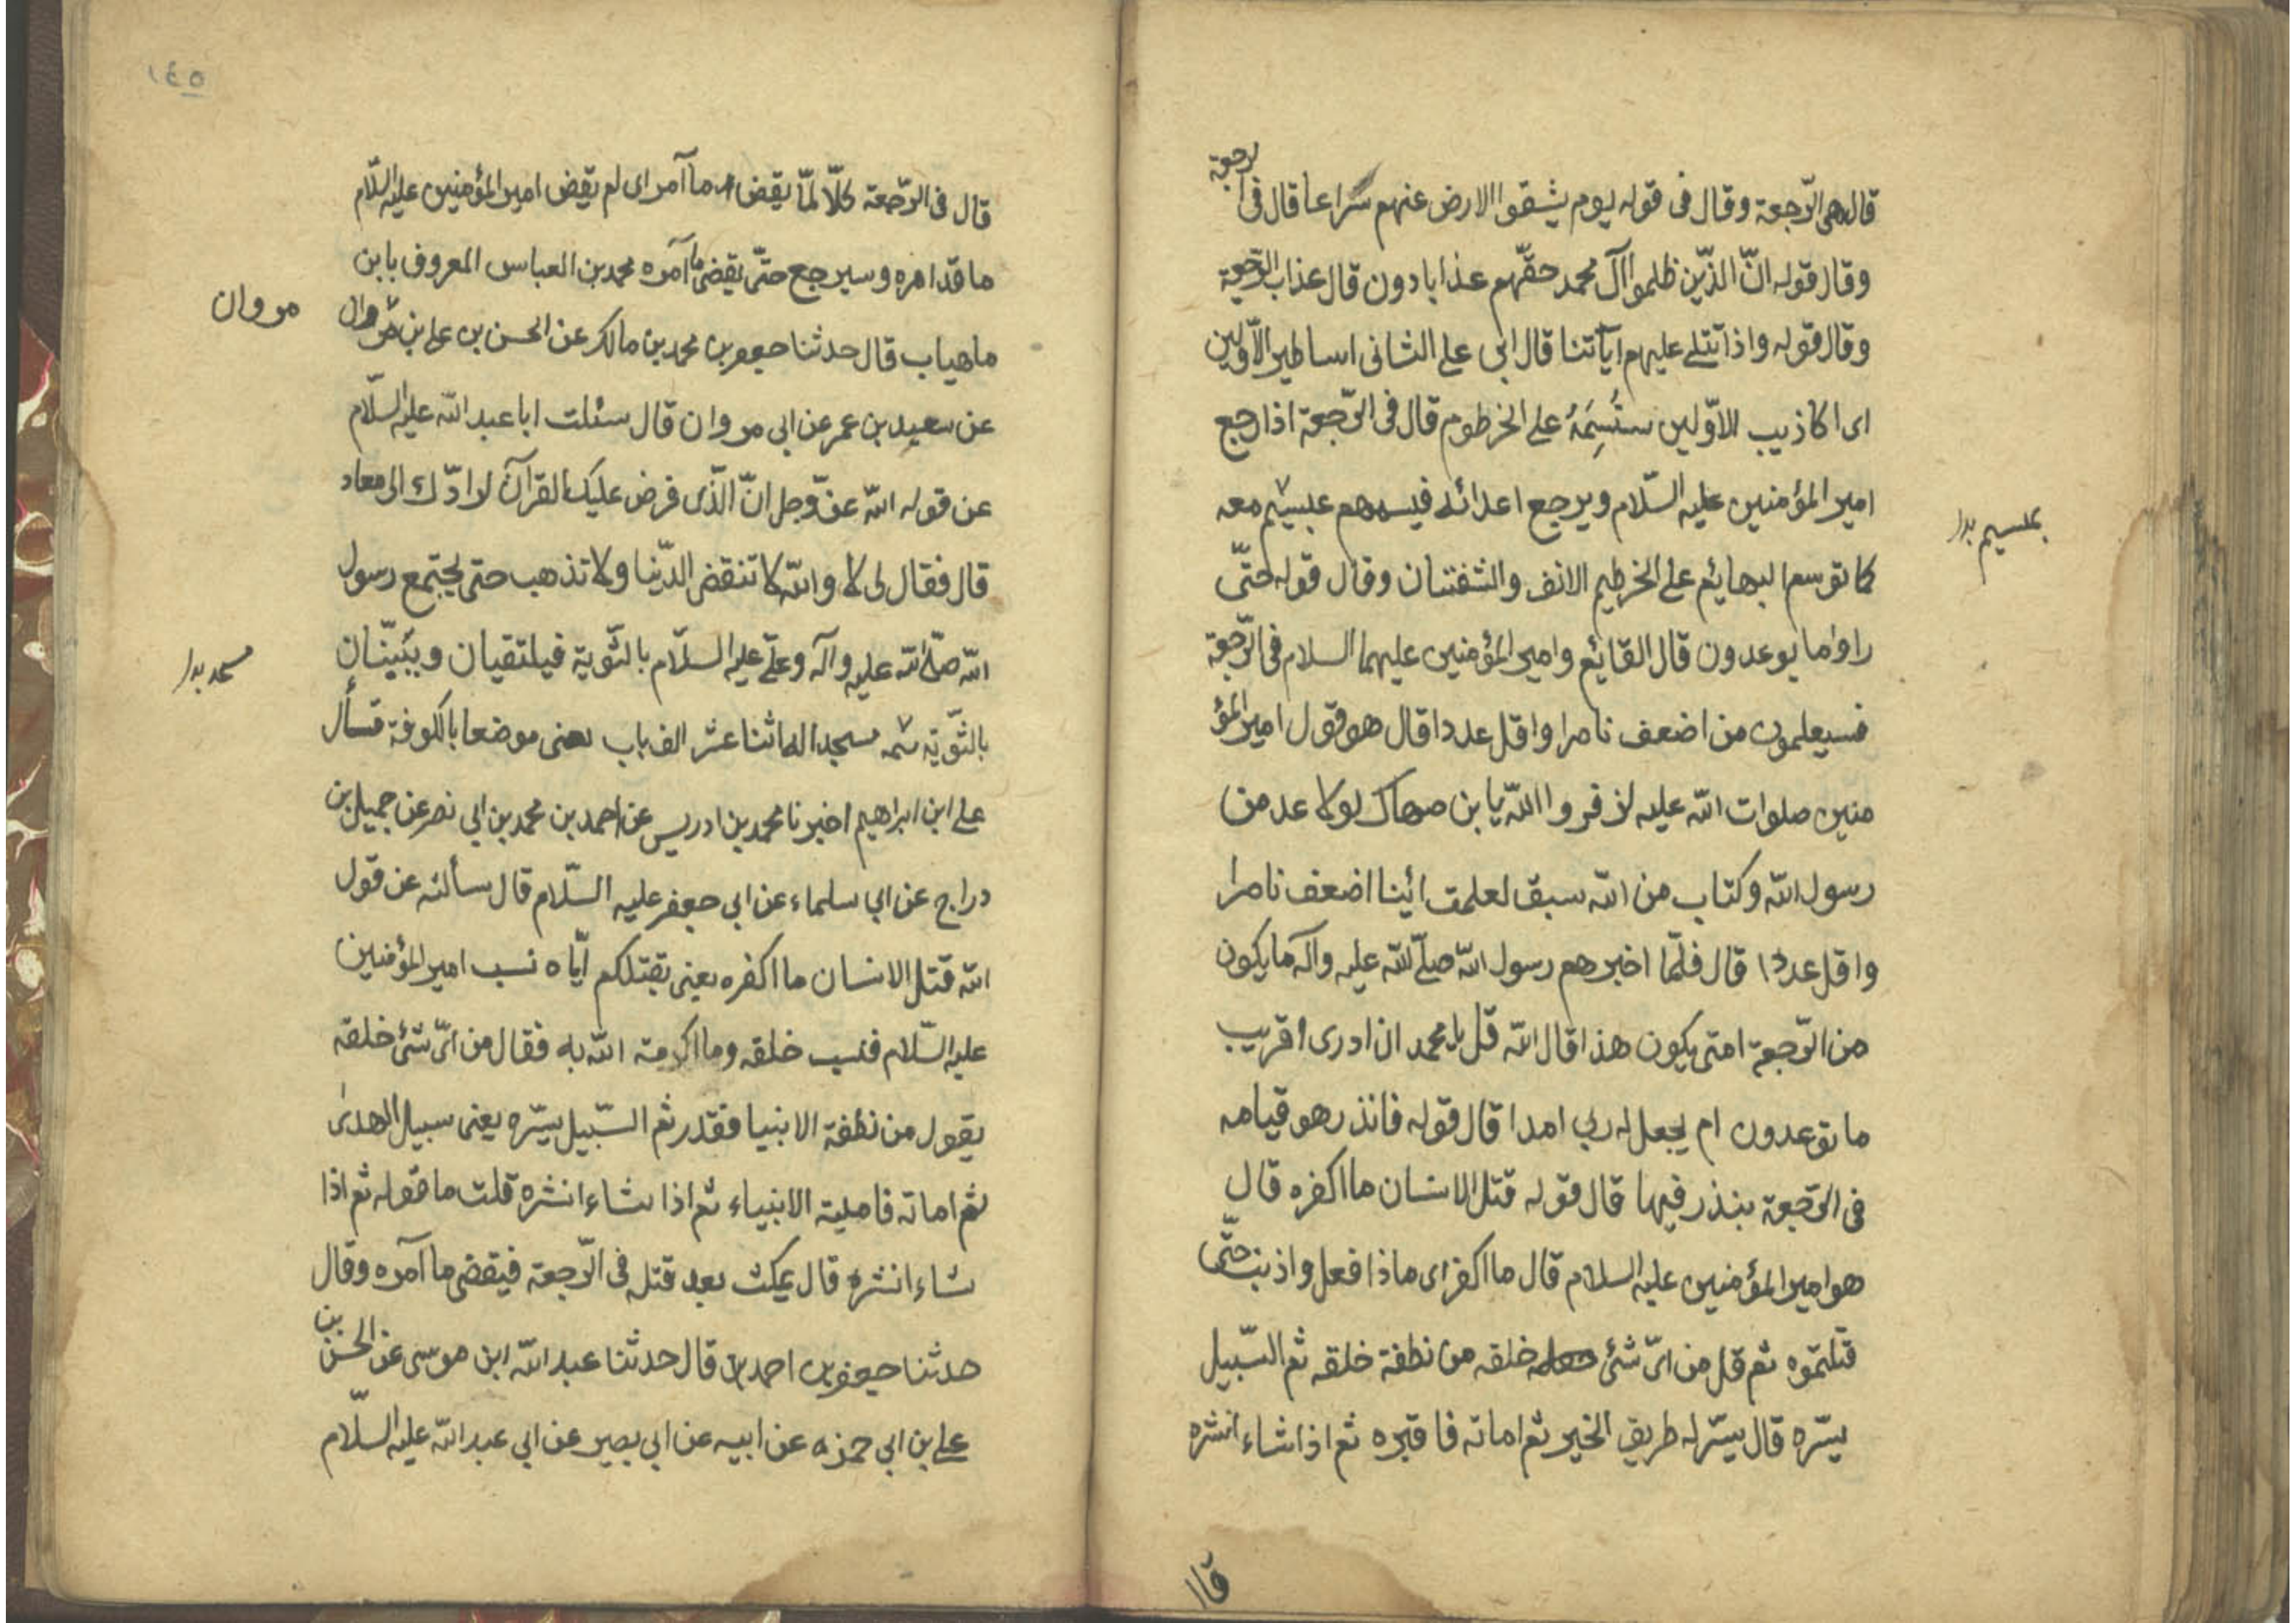 قال هى الرّجعة وقال فى قوله يوم يشقوا الارض عنهم سراعا قال فى الرجعة
وقال قوله انّ الذّين ظلموا آل محمد حقّهم عذابا دون قال عذاب الرّجعية
وقال قوله واذا تتلے عليهم آياتنا قال ابى علے الثانى اساطير الاوّلين
اى اكاذيب الاوّلين سنَسِمَهُ على الخرطوم قال فى الرّجعة اذا رجع
امير المؤمنين عليه السّلام ويرجع اعدائه فيسمهم عبسيم معه
كما توسم البهايم على الخرطيم الانف والشفتان وقال قوله حتّى
راوا ما يوعدون قال القايم وامير المؤمنين عليهما السلام فى الرّجعة
فسيعلمون من اضعف ناصرا واقل عددا قال هو قول امير المؤ
منين صلوات الله عليه لزفر والله يا بن صهاك لولا عد من
رسول الله وكتاب من الله سبق لعلمت ائينا اضعف ناصرا
واقل عددا قال فلمّا اخبرهم رسول الله صلّى الله عليه وآله ما يكون
من الرّجعة امتى يكون هذا قال الله قل يا محمد ان ادرى اقريب
ما توعدون ام يجعل له ربي امدا قال قوله فانذر هو قيامه
فى الرّجعة ينذر فيها قال قوله قتل الانسان ما اكفره قال
هو امير المؤمنين عليه السلام قال ما اكفر اى ماذا فعل واذنب حتّى
قتلتموه ثم قل من اىّ شئ خلقه من نطفة خلقه ثم السّبيل
يسّره قال يسّر له طريق الخير ثم اماته فاقبره ثم اذا شاء انشره
قال
١٤٥
قال فى الرّجعة كلّا لمّا يقض ما آمر اى لم يقض امير المؤمنين عليه السّلام
ما قد امره وسيرجع حتّى يقضى ما آمره محمد بن العباس المعروف بابن
ماهياب قال حدثنا جعفر بن محمد بن مالك عن الحسن بن على بن مروان
مروان
عن سعيد بن عمر عن ابي مروان قال سئلت ابا عبد الله عليه السّلام
عن قوله الله عزّ وجل انّ الذّى فرض عليك القرآن لرادّك الى معاد
قال فقال لى لا والله لا تنقض الدّنيا ولا تذهب حتى يجتمع رسول
الله صلّى الله عليه وآله وعلىّ عليه السلّام بالثّوية فيلتقيان ويبنيّان
بالثّويّة ثمه مسجد اله اثنا عشر الف باب يعنى موضعا بالكوفة قسأل
على ابن ابراهيم اخبرنا محمد بن ادريس عن احمد بن محمد بن ابي نصر عن جميل بن
دراج عن ابي سلماء عن ابي جعفر عليه السّلام قال سألته عن قول
الله قتل الانسان ما اكفره يعنى بقتلكم ايّاه نسب امير المؤمنين
عليه السّلام فنسب خلقه وما اكرمته الله به فقال من اىّ شئ خلقه
يقول من نطفة الابنيا فقدر ثم السّبيل يسّره يعنى سبيل الهدى
ثم اماته فاميتة الانبياء ثم اذا شاء انشره قلت ما قوله ثم اذا
شاء انشره قال يمكث بعد قتله فى الرّجعة فيقضى ما آمره وقال
حدثنا جعفر بن احمد قال حدثنا عبد الله ابن موسى عن الحسن بن
على بن ابي حمزه عن ابيه عن ابي بصير عن ابي عبد الله عليه السّلام